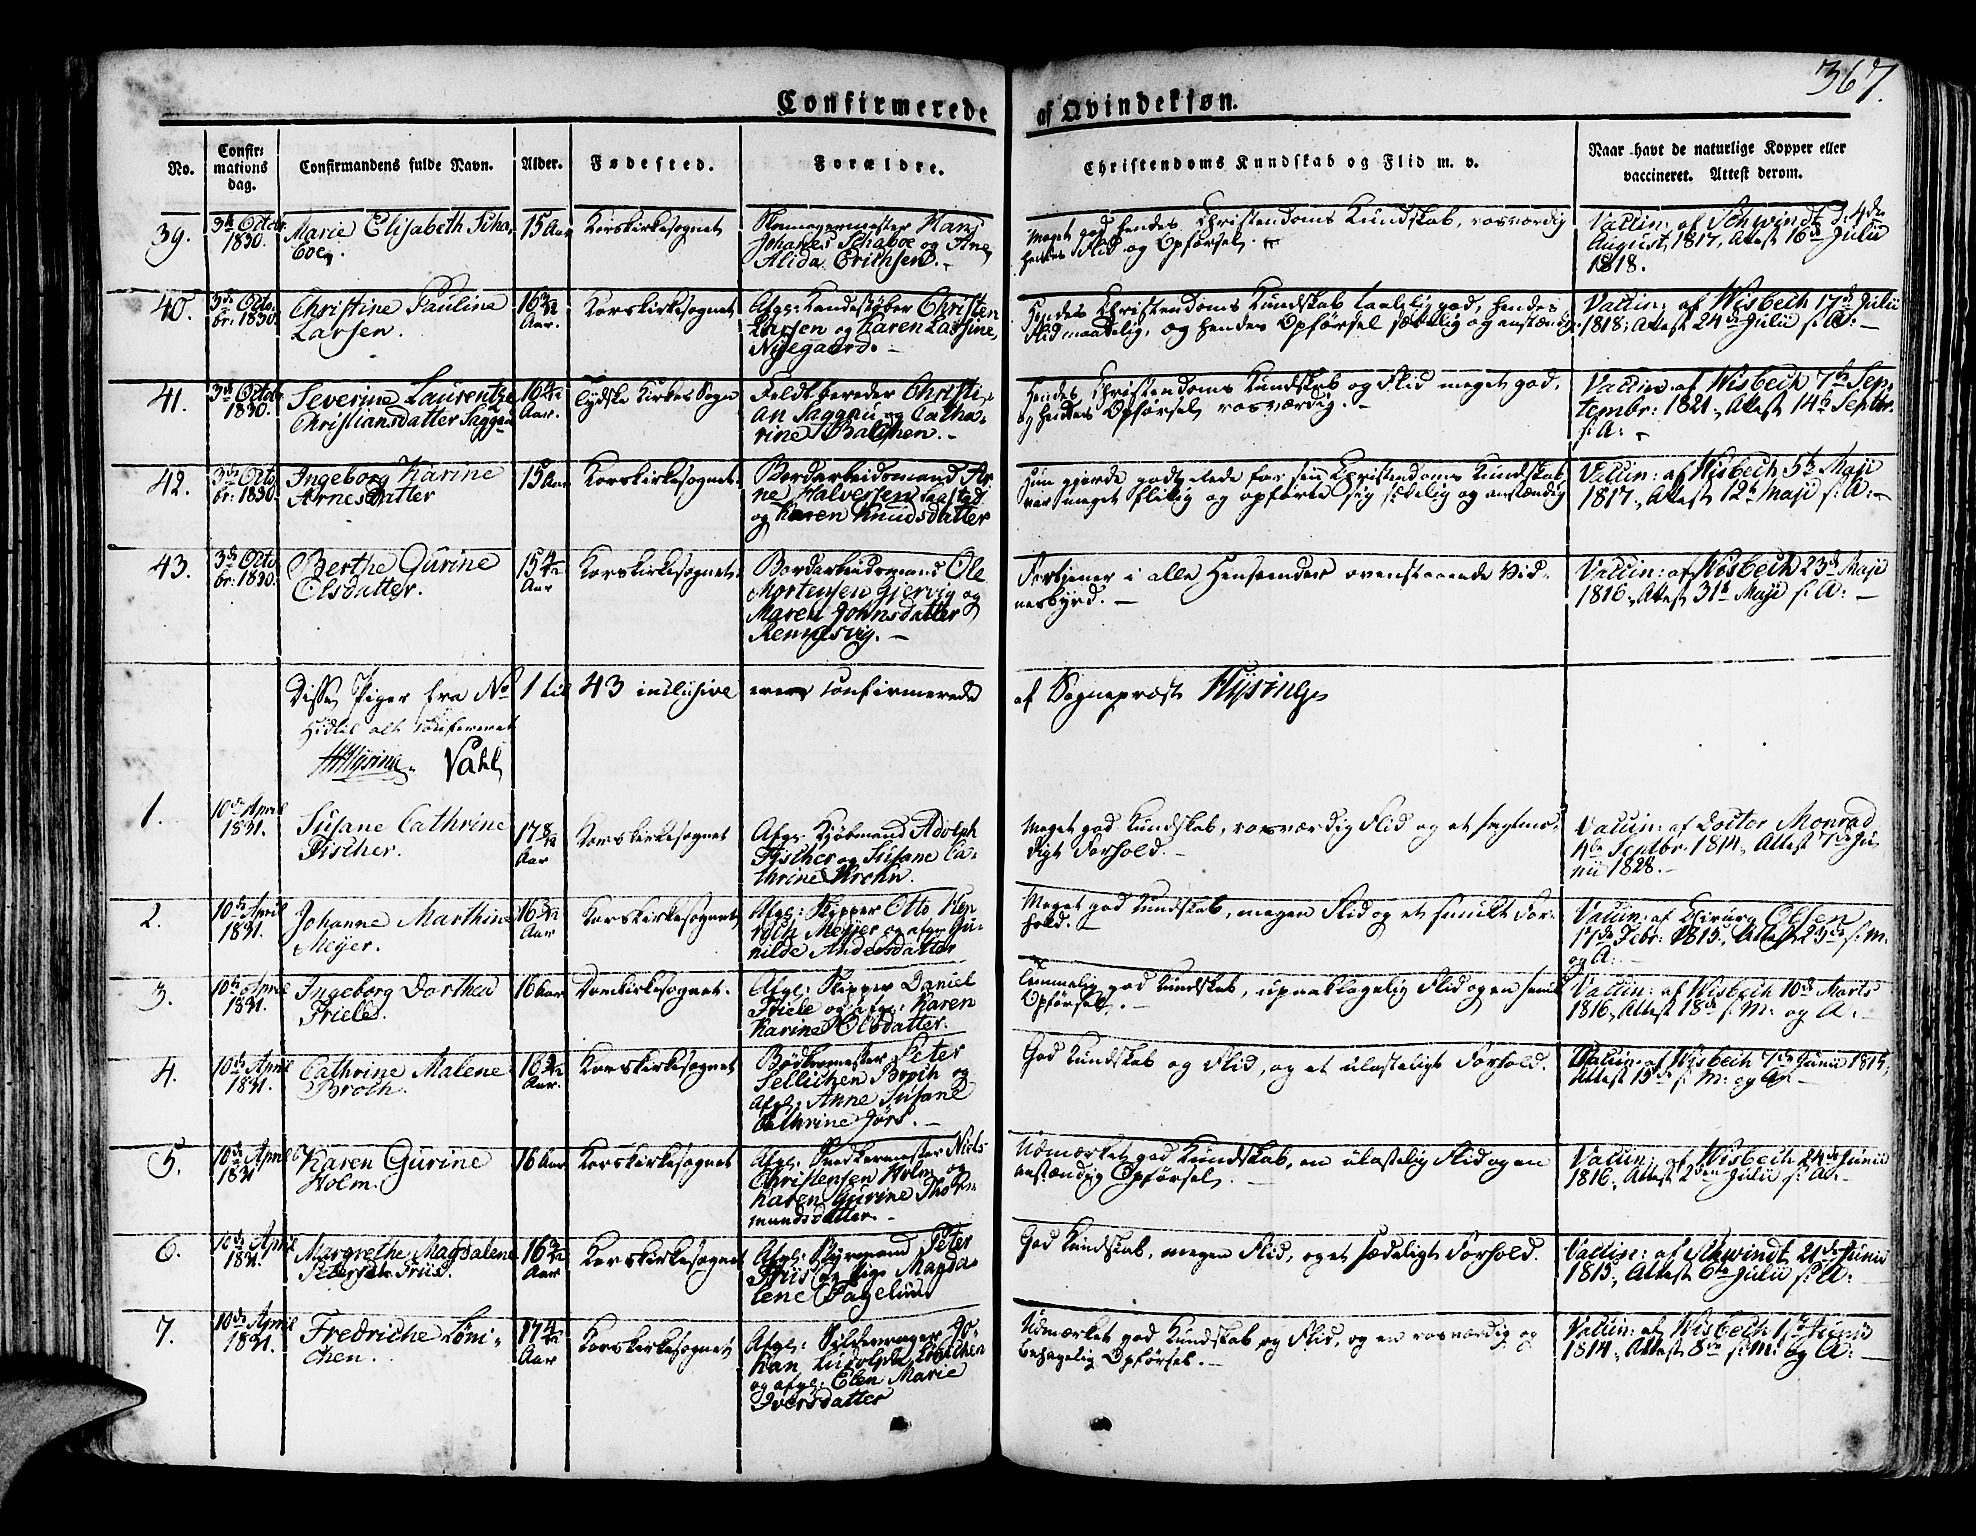 367.
Confirmerede af Qvindekiøn.
No.
Confir-
mations
dag.
Confirmandens fulde Navn.
Alder.
Fødested.
Forældre.
Christendoms Kundskab og Flid m. v.
Naar havt de naturlige Kopper eller
vaccineret. Attest derom.
39.
3die Octbr
1830.
Marie Elisabeth Scha-
boe.
15 Aar
Korskirkesognet
Skomagermester Hans
Johanes Schaboe og Ane
Alida Erichsen.
Meget god hendes Christendoms Kundskab, rosværdig
hendes Flid og Opførsel.
Vaccin: af Schwindt d. 4de
August 1817, Attest 16de Julii
1818.
40.
3de Octo
br: 1830.
Christine Paulina
Larsen.
16 3/12
Aar.
Korskirkesognet
Afg: Christen
Larsen og Karen Larsine
Nyegaard.
Hendes Christendoms Kundskab taalelig god, hendes
Flid maadelig, og hendes Opførsel sædelig og anstændig.
Vaccin: af Wisbech 17de Julii
1818, Attest 24de Julii s: A:
41.
3die Octob
1830.
Severine Laurentze
Christiansdatter Saggau
16 4/12
Aar.
tydske Kirkes Sogn
Feldtbereder Christi-
an Saggau og Catha-
rine Balchen.
Hendes Christendoms Kundskab og Flid meget god,
og hendes Opførsel rosværdig.
Vaccin: af Wisbech 7de Sep-
tembr: 1821, Attest 14de Septbr.
s: A:
42.
3die Octo
br: 1830.
Ingeborg Karine
Arnesdatter
15 Aar
Korskirkesognet.
Bordarbeidsmand Ar-
ne Halversen
og Karen Knudsdatter
Hun gjorde godt rede for sin Christendoms Kundskab,
var meget flitig og opførte sig sædelig og anstændig
Vaccin: af Wisbech 5te Maji
1817, Attest 12te Maji s: A:
43.
3die Octo
br: 1830.
Berthe Gurine
Olsdatter.
15 4/12
Aar
Korskirkesognet.
Bordarbeidsmand Ole
Mortensen Gjervig og
Maren Johnsdatter
Rennesvig.
Fortjener i alle Henseender ovenstaaende Vid-
nesbyrd.
Vaccin: af Wisbech 23de Maji
1816, Attest 31te Maji s: A:
Disse Piger fra No 1 til 43 inclusive ere confirmerede af Sogneprest Hysing
Hidtil alt confereret
HHysing. Vahl
1.
10de April
1831.
Susane Cathrine
Fischer.
17 8/12
Aar
Korskirkesognet
Afg: Kjøbmand Adolph
Fischer og Susane Ca-
thrine Krohn.
Meget god Kundskab, rosværdig Flid og et sagtmo-
digt Forhold.
Vaccin: af Doctor Monrad
4de Septbr: 1814, Attest 7de Ju-
nii 1828.
2.
10de April
1831.
Johanne Marthine
Meyer.
16 3/12
Aar
Korskirkesognet
Afg: Skipper Otto Hen-
rich Meyer og afg: Gu-
nilde Andersdatter
Meget god Kundskab, megen Flid og et smukt For-
hold.
Vaccin: af Chirurg Olsen
17de Febr: 1815, Attest 23de s: M:
og A:
3.
10de April
1831.
Ingeborg Dorthea
Friele.
16 Aar
Domkirkesognet.
Afg: Skipper Daniel
Friele og afg: Karen
Karine Olsdatter.
Temmelig god Kundskab, upaaklagelig Flid og en smuk
Opførsel.
Vaccin: af Wisbech 10de Marts
1816, Attest 18de s: M: og A:
4.
10de April
1831.
Cathrine Malene
Broch.
16 3/12
Aar.
Korskirkesognet
Bødkermester Peter
Sellichen Broch og
Afg: Anne Susane
Cathrine Jørs.
God Kundskab og Flid, og et ulasteligt Forhold.
Vaccin: af Wisbech 7de Junii 1815,
Attest 15de s: M: og A:
5.
10de April
1831
Karen Gurine
Holm.
16 Aar
Korskirkesognet
Afg: Snedkermester Niels
Christensen Holm og
Karen Gurine Thor-
mundsdatter.
Udmærket god Kundskab, en ulastelig Flid og en
anstændig Opførsel.
Vaccin: af Wisbech 24de Junii
1816, Attest 2den Julii s: A:
6.
10de April
1831.
Margrethe Magdalene
Petersen Friis.
16 3/12
Aar
Korskirkesognet
Afg: Styrmand Peter
Friis og Magda-
lene Fagelund
God Kundskab, megen Flid, og et sædeligt Forhold.
Vaccin: af Schwindt 21de Junii
1815, Attest 6te Julii s: A:
7.
10de April
1831.
Fredriche Lüni-
chen.
17 4/12
Aar
Korskirkesognet
Afg: Jo-
han Ludolph Lünichen
og afg: Elen Marie
Iversdatter
Udmærket god Kundskab og Flid, og en rosværdig og
behagelig Opførsel.
Vaccin: af Wisbech 1ste Junii
1814, Attest 8de s: M: og A: